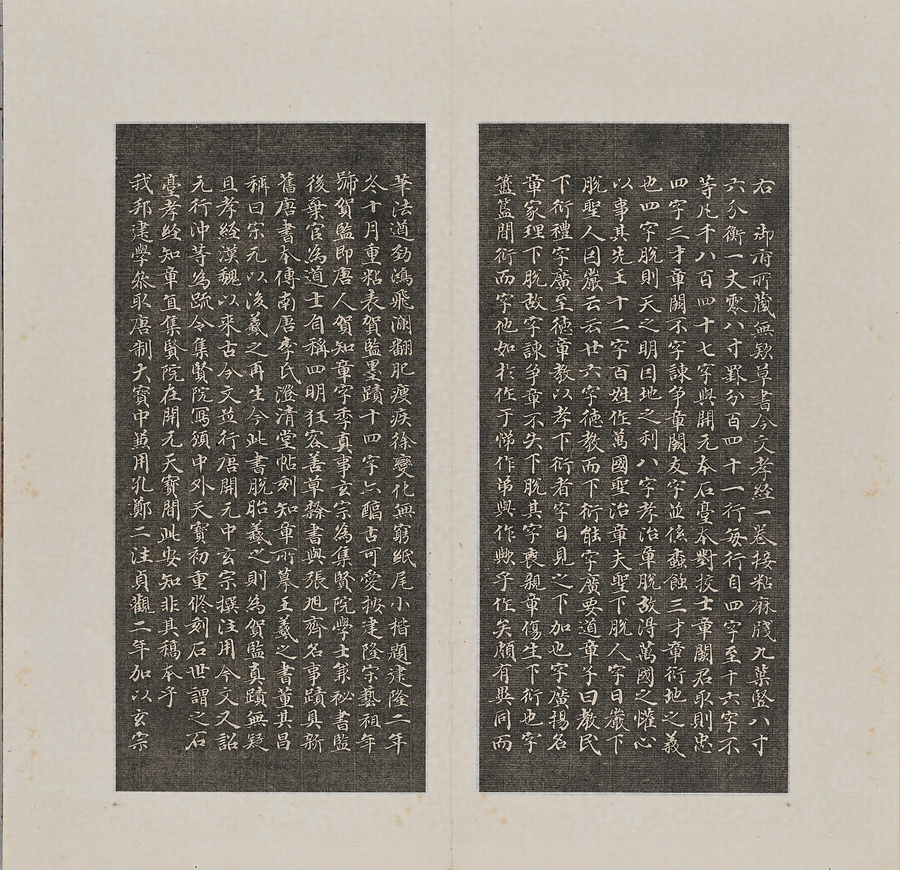 右　御府所藏無款草書今文孝經一卷接粘麻牋九葉竪八寸
六分衡一丈零八寸罫分百四十一行每行自四字至十六字不
等凡千八百四十七字與開元本石臺本對挍士章闕君取則忠
四字三才章闕不字諫爭章闕友字並係蠹蝕三才章衍地之義
也四字脫則天之明因地之利八字孝治章脫故得萬國之懽心
以事其先王十二字百姓作萬國聖治章夫聖下脫人字日嚴下
脫聖人因嚴云云廿六字德教而下衍能字廣要道章子曰教民
下衍禮字廣至德章教以孝下衍者字日見之下加也字廣揚名
章家理下脫故字諫爭章不失下脫其字喪親章傷生下衍也字
簠簋間衍而字他如於作于悌作弟與作歟乎作矣頗有異同而
筆法遒勁鴻飛洞翻肥瘦疾徐變化無窮紙尾小楷題建隆二年
冬十月重粘表賀監墨蹟十四字亦醞古可愛按建隆宋藝祖年
號賀監即唐人賀知章字季真事玄宗為集賢院學士兼祕書監
後棄官為道士自稱四明狂客善草隸書與張旭齊名事蹟具新
舊唐書本傳南唐李氏澄清堂帖刻知章所摹王羲之書董其昌
稱曰宋元以後羲之再生今此書脫胎羲之則為賀監真蹟無疑
且孝經漢魏以來古今文並行唐開元中玄宗撰注用今文又詔
元行沖等為疏令集賢院寫頒中外天寶初重修刻石世謂之石
臺孝經知章直集賢院在開元天寶間此安知非其稿本乎
我邦建學參取唐制大寶中並用孔鄭二注貞觀二年加以玄宗